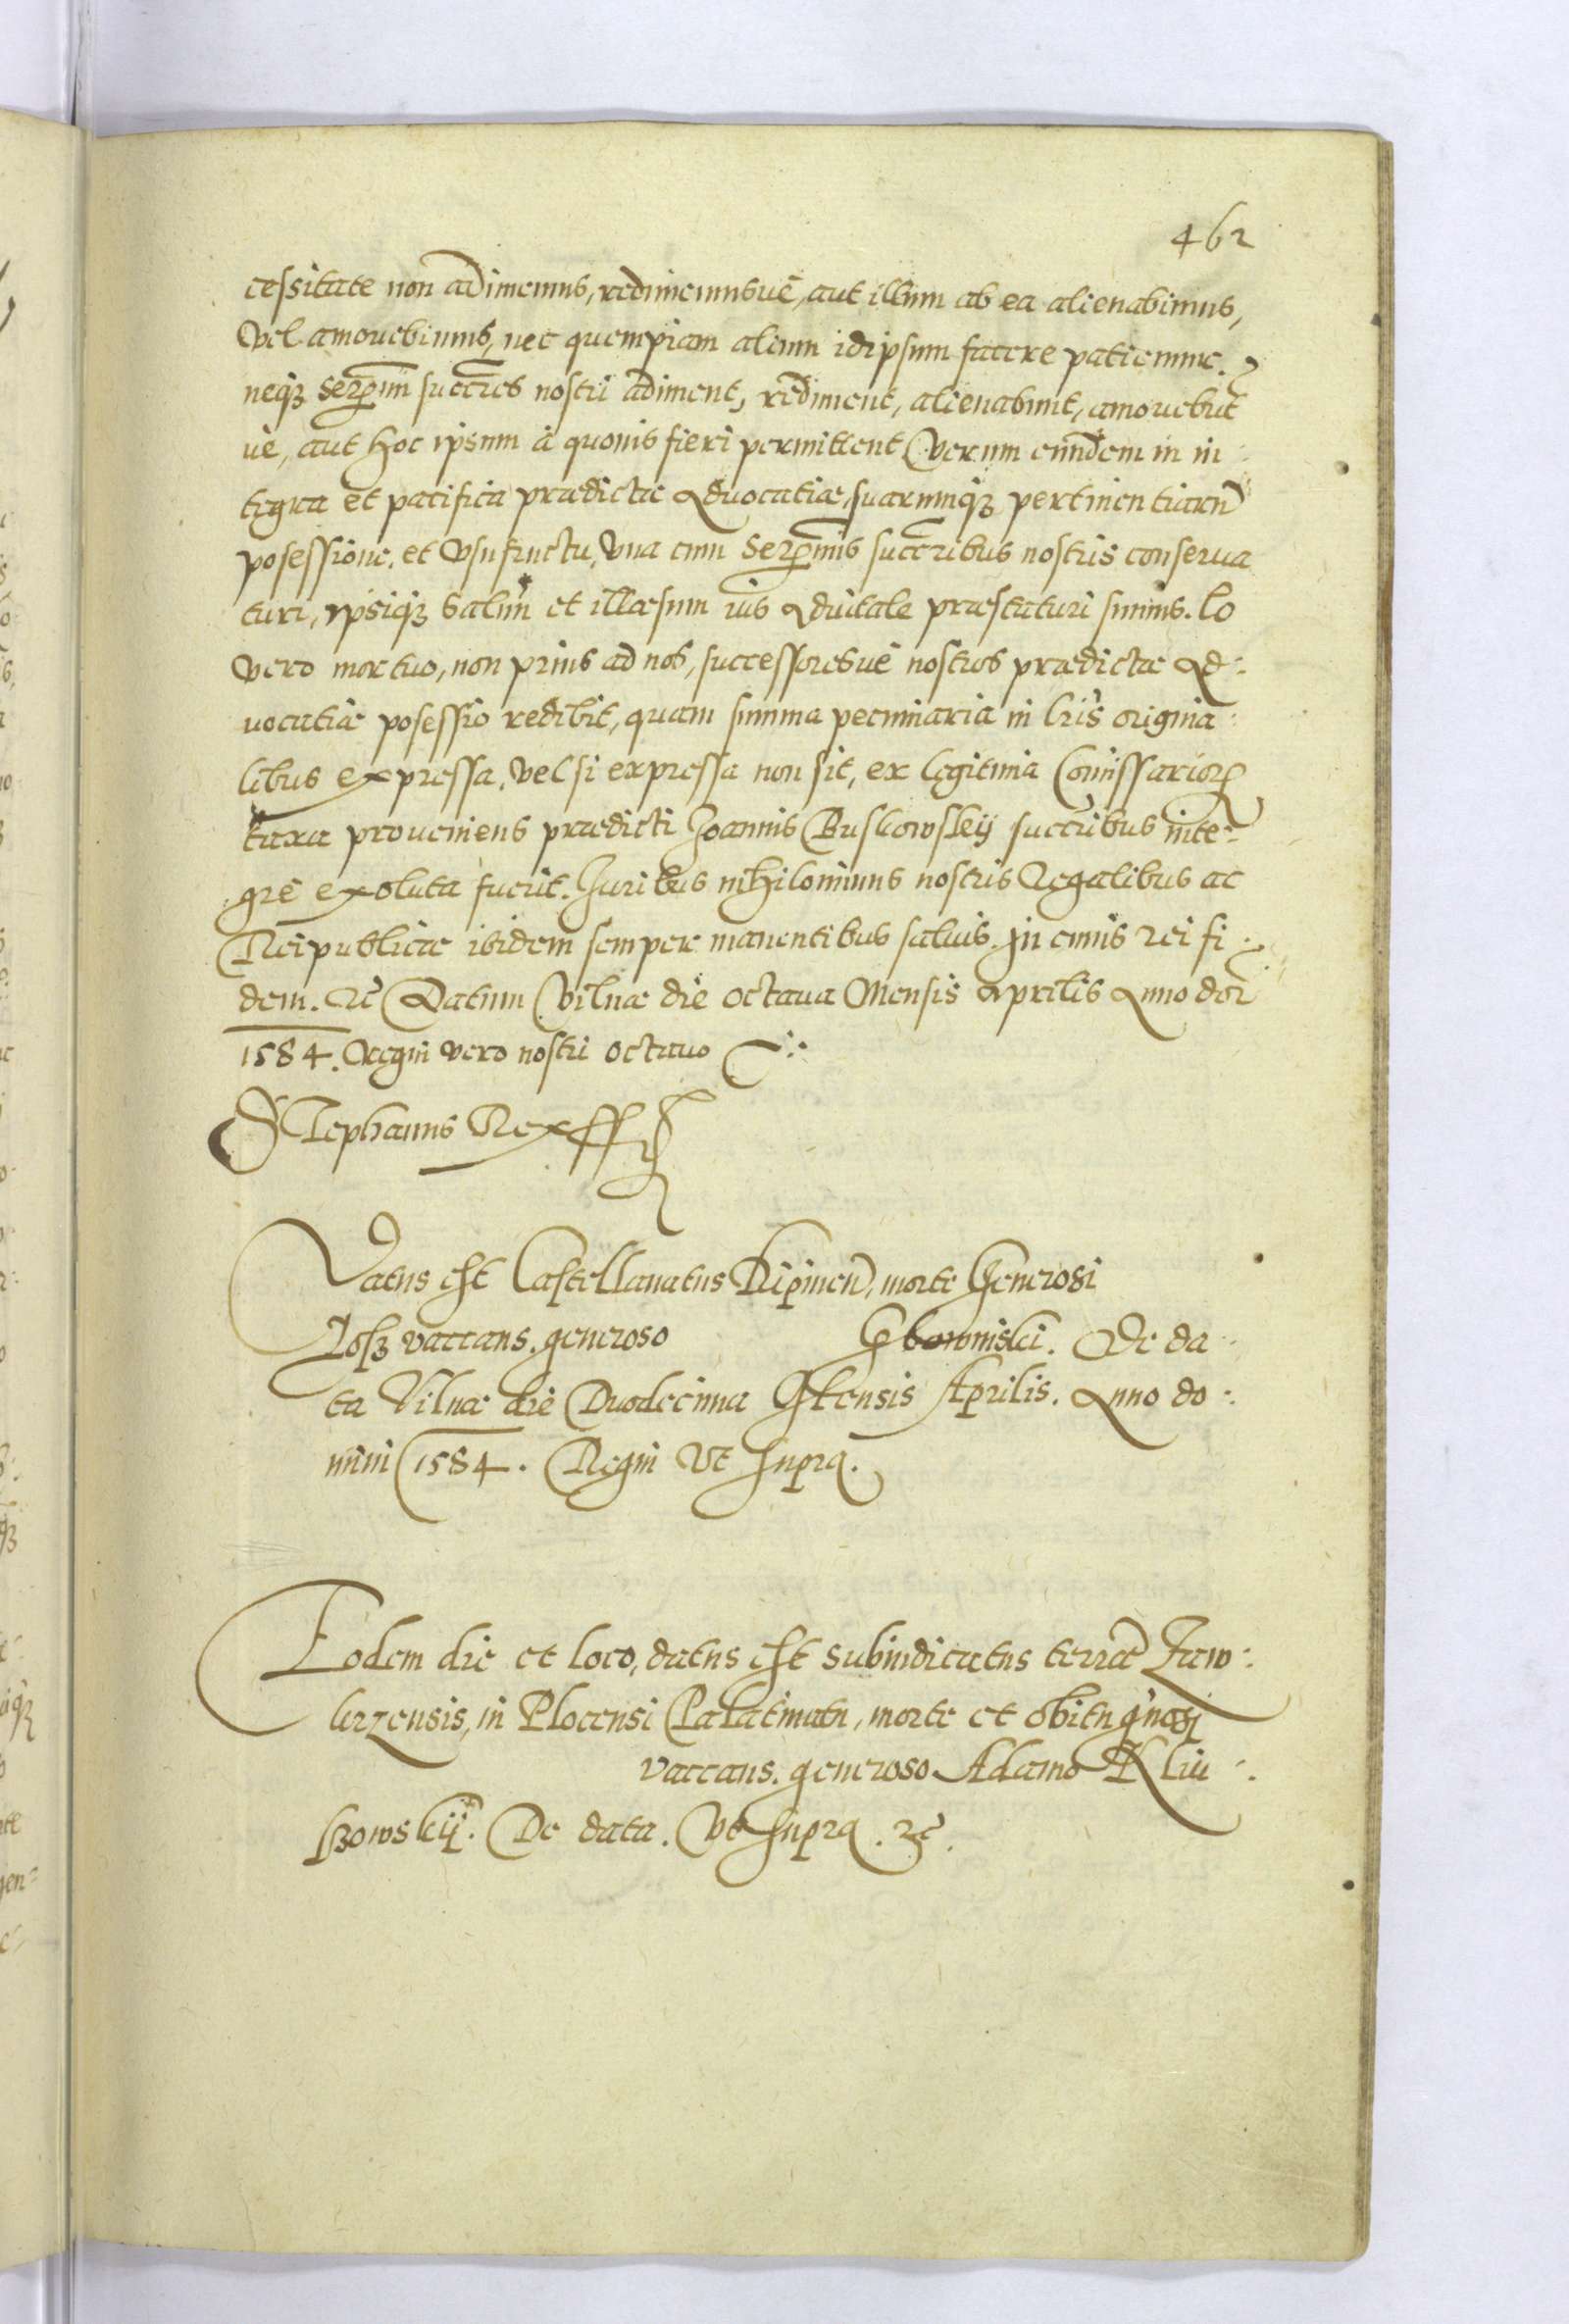 462
cessitate non adimemus, redimemusvè, aut illum ab ea alienabimus,
Vel amovebimus, nec quempiam alium idipsum facere patiemur.
neqz Serp̄mi succr̄es nostri adiment, rediment, alienabunt, amovebūt
vè, aut hoc ipsum à quovis fieri permittent Verum eundem in in:
tegra et pacifica prædictæ Advocatiæ, suarumqz pertinentiarū
posessione, et Vsufructu, Vna cum Serp̄mis succr̄ibus nostris conserva
turi, ipsiqz Salvū et illæsum ius Advitale præstaturi sumus. Eo
vero mortuo, non prius ad nos, successoresvè nostros prædictæ Ad:
vocatiæ posessio redibit, quam summa pecuniaria in lr̄is origina:
libus expressa, vel si expressa non sit, ex legitima Comissarior
taxa proveniens prædicti Joannis Buskowskij succr̄ibus inte:
grè exoluta fuerit. Juribus nihilominus nostris Regalibus ac
Reipublicæ ibidem semper manentibus salvis. In cuius rei fi:
dem. etc Datum Vilnæ die octava Mensis Aprilis Anno dnī
1584. Regni vero nostri octavo
Stephanus Rex ff
Datus est Castellanatus Ripinen, morte Generosi
vaccans. generoso Gbowniski. De da:
ta Vilnæ die Duodecima Mensis Aprilis. Anno do:
mini 1584. Regni Vt supra.
Eodem die et loco, datus est subiudicatus terræ Zaw:
krzensis, in Plocensi Palatinatu, morte et obitu gnosi
vaccans. generoso Adamo Kliu:
szowskij. De data. Vt supra. etc.